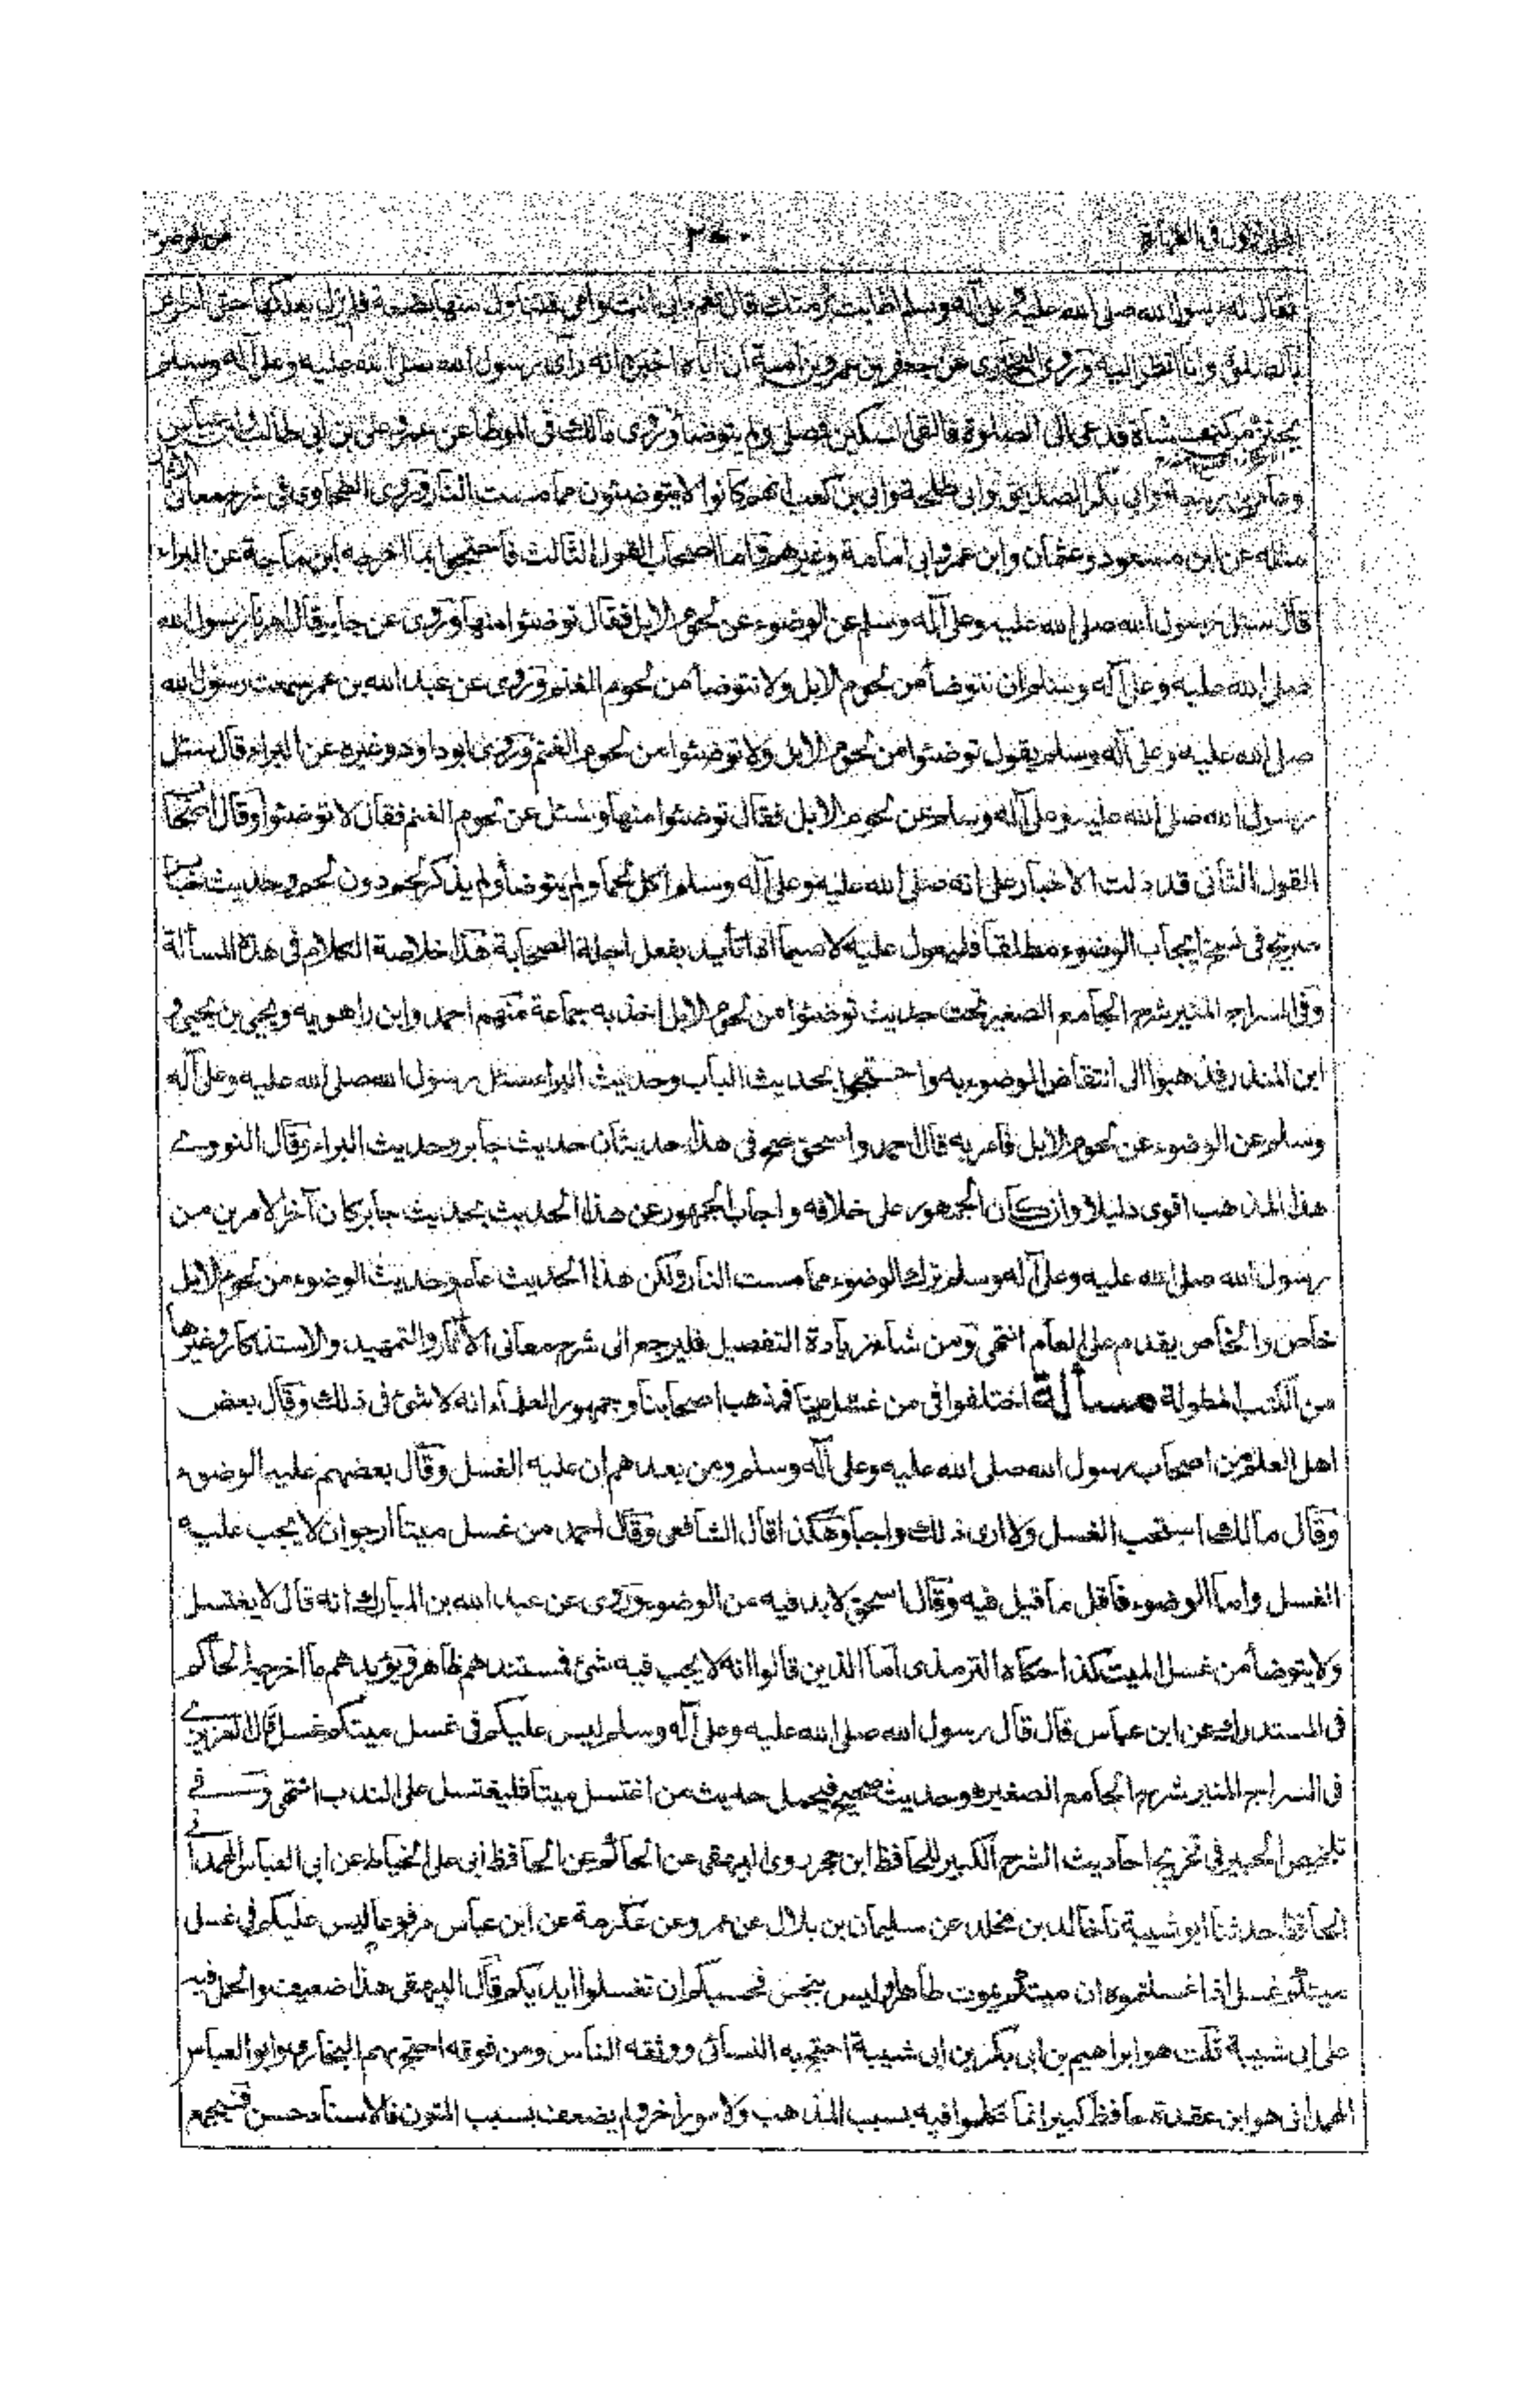 فقال له رسول الله صلى الله عليه وعلى آله وسلم اطابت برمتك قال نعم بابي انت وامي فتناول منها بضعة فلم يزل يعلكها حتى احرم
بالصلوة وانا انظر اليه وروى البخارى عن جعفر بن عمرو بن امية ان اباه اخبره انه رأى رسول الله صلى الله عليه وعلى آله وسلم
يحتز من كتف شاة فدعى الى الصلوة فالقى السكين فصلى ولم يتوضأ وروى مالك فى الموطأ عن عمر وعلى بن ابى طالب وابن عباس
وعامر بن ربيعة وابى بكر الصديق وابى طلحة وابى بن كعب انهم كانوا لا يتوضئون مما مست النار وروى الطحاوى فى شرح معانى الآثار
مثله عن ابن مسعود وعثمان وابن عمر وابى امامة وغيرهم فاما اصحاب القول الثالث فاحتجوا بما اخرجه ابن ماجة عن البراء
قال سئل رسول الله صلى الله عليه وعلى آله وسلم عن الوضوء عن لحوم الابل فقال توضئوا منها وروى عن جابر قال امرنا رسول الله
صلى الله عليه وعلى آله وسلم ان نتوضأ من لحوم الابل ولا نتوضأ من لحوم الغنم وروى عن عبد الله بن عمر سمعت رسول الله
صلى الله عليه وعلى آله وسلم يقول توضئوا من لحوم الابل ولا توضئوا من لحوم الغنم وروى ابو داود وغيره عن البراء قال سئل
رسول الله صلى الله عليه وعلى آله وسلم عن لحوم الابل فقال توضئوا منها وسئل عن لحوم الغنم فقال لا توضئوا وقال اصحاب
القول الثانى قد دلت الاخبار على انه صلى الله عليه وعلى آله وسلم اكل لحما ولم يتوضأ ولم يذكر لحم دون لحم وحديث
صريح فى نسخ ايجاب الوضوء مطلقا فليعول عليه لا سيما اذا تأيد بفعل اجلة الصحابة هذا خلاصة الكلام فى هذه المسألة
وفى السراج المنير شرح الجامع الصغير تحت حديث توضئوا من لحوم الابل اخذ به جماعة منهم احمد وابن راهويه ويحيى بن يحيى و
ابن المنذر فذهبوا الى انتقاض الوضوء به واحتجوا بحديث الباب وحديث البراء سئل رسول الله صلى الله عليه وعلى آله
وسلم عن الوضوء عن لحوم الابل فامر به قال احمد واسحق صح فى هذا حديثان حديث جابر وحديث البراء وقال النووى
هذا المذهب اقوى دليلا وان كان الجمهور على خلافه واجاب الجمهور عن هذا الحديث بحديث جابر كان آخر الامرين من
رسول الله صلى الله عليه وعلى آله وسلم ترك الوضوء مما مست النار ولكن هذا الحديث عام وحديث الوضوء من لحوم الابل
خاص والخاص يقدم على العام انتهى ومن شاء زيادة التفصيل فليرجع الى شرح معانى الآثار والتمهيد والاستذكار وغيرها
من الكتب المطولة مسألة اختلفوا فى من غسل ميتا فمذهب اصحابنا وجمهور العلماء انه لا شئ فى ذلك وقال بعض
اهل العلم من اصحاب رسول الله صلى الله عليه وعلى آله وسلم ومن بعدهم ان عليه الغسل وقال بعضهم عليه الوضوء
وقال مالك استحب الغسل ولا ارى ذلك واجبا وهكذا قال الشافعى وقال احمد من غسل ميتا ارجو ان لا يجب عليه
الغسل واما الوضوء فاقل ما قيل فيه وقال اسحق لا بد فيه من الوضوء وروى عن عبد الله بن المبارك انه قال لا يغتسل
ولا يتوضأ من غسل الميت كذا حكاه الترمذى اما الذين قالوا انه لا يجب فيه شئ فمستندهم ظاهر ويؤيدهم ما اخرجه الحاكم
فى المستدرك عن ابن عباس قال قال رسول الله صلى الله عليه وعلى آله وسلم ليس عليكم فى غسل ميتكم غسل قال العزيزى
فى السراج المنير شرح الجامع الصغير هو حديث صحيح فيحمل حديث من اغتسل ميتا فليغتسل على الندب انتهى وفى
تلخيص الحبير فى تخريج احاديث الشرح الكبير للحافظ ابن حجر روى البيهقى عن الحاكم عن الحافظ ابى على الخياط عن ابى العباس الهمدانى
الحافظ حدثنا ابو شيبة نا خالد بن مخلد عن سليمان بن بلال عن عمرو عن عكرمة عن ابن عباس مرفوعا ليس عليكم فى غسل
ميتكم غسل اذا غسلتموه ان ميتكم يموت طاهرا وليس بنجس فحسبكم ان تغسلوا ايديكم وقال البيهقى هذا ضعيف والحمل فيه
على ابى شيبة قلت هو ابراهيم بن ابى بكر بن ابى شيبة احتج به النسائى ووثقه الناس ومن فوقه احتج بهم البخارى وابو العباس
الهمدانى هو ابن عقدة حافظ كبير انما تكلموا فيه بسبب المذهب ولامور اخر ولم يضعف بسبب المتون فالاسناد حسن فيجمع